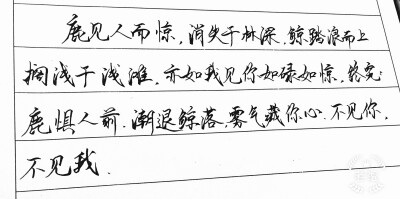 鹿见人而惊,消失于林深,鲸踏浪而上
搁浅于浅滩,亦如我见你如碌如惊,终究
鹿惧人前.潮退鲸落,雾气藏你心.不见你,
不见我.